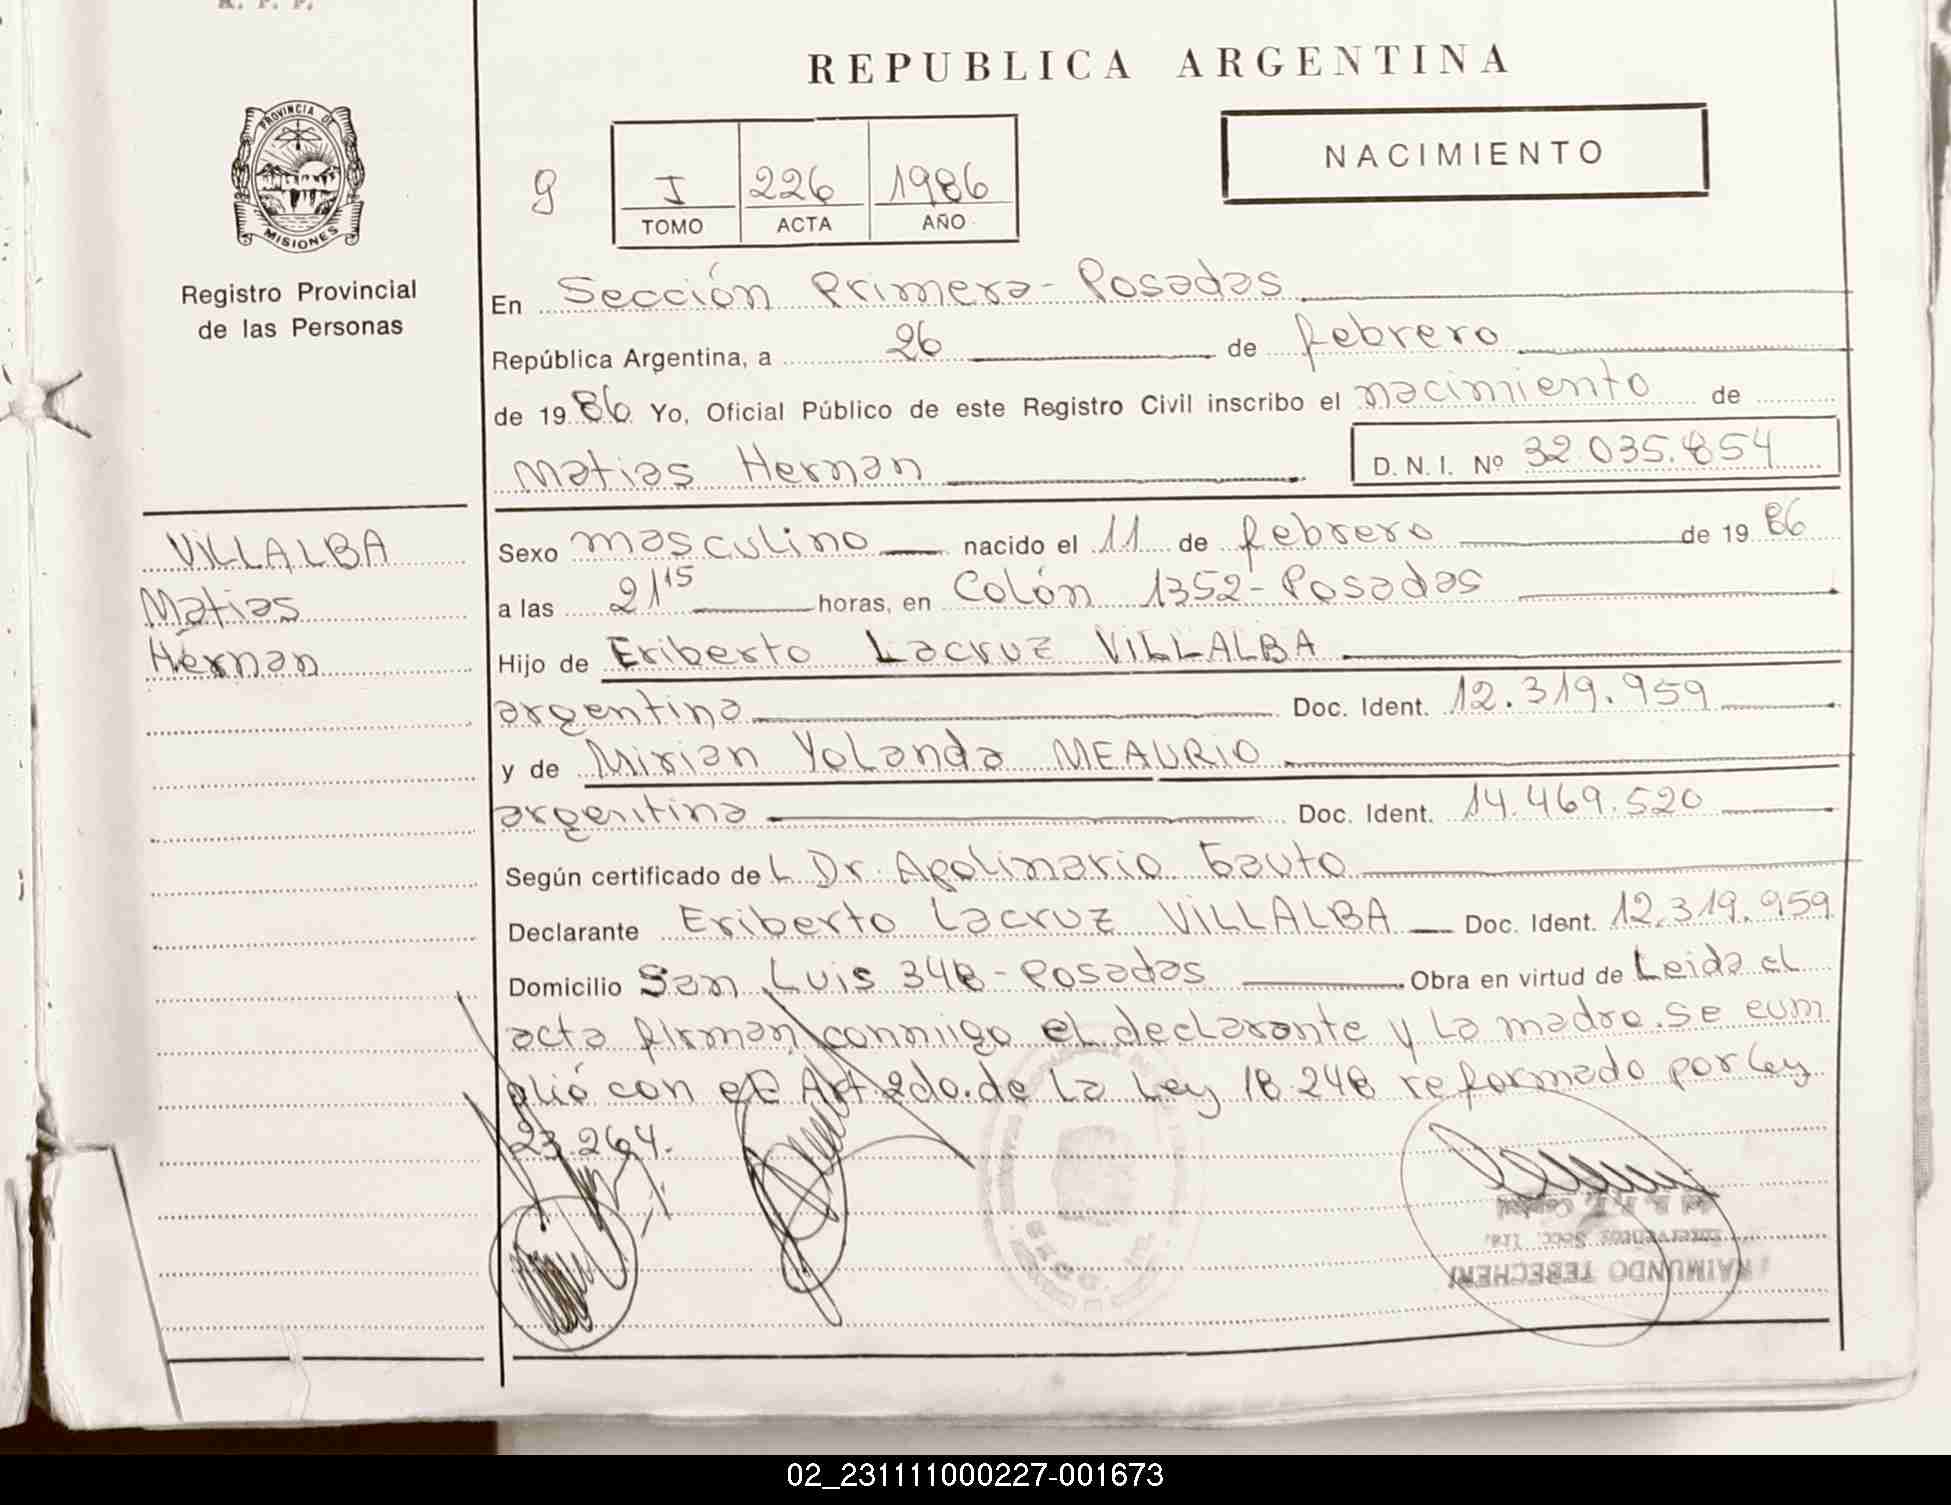 R. P. P.
REPUBLICA ARGENTINA
PROVINCIA DE
MISIONES
Registro Provincial
de las Personas
NACIMIENTO
g I 226 1986
TOMO ACTA AÑO
En Sección Primera - Posadas
República Argentina, a 26 de febrero
de 1986 Yo, Oficial Público de este Registro Civil inscribo el nacimiento de
Matias Hernan D.N.I. Nº 32.035.854
VILLALBA
Matias
Hernan
Sexo masculino nacido el 11 de febrero de 1986
a las 21 15 horas, en Colón 1352 - Posadas
Hijo de Eriberto Lacruz VILLALBA
argentina Doc. Ident. 12.319.959
y de Mirian Yolanda MEAURIO
argentina Doc. Ident. 14.469.520
Según certificado del Dr. Apolinario Gauto
Declarante Eriberto Lacruz VILLALBA Doc. Ident. 12.319.959
Domicilio San Luis 348 - Posadas Obra en virtud de Leida el
acta firman conmigo el declarante y la madre. Se cum
plió con el Art. 2do. de la Ley 18.248 reformado por Ley
23.264.
RAIMUNDO TERECHEN
Secc. 1ra.
02_231111000227-001673